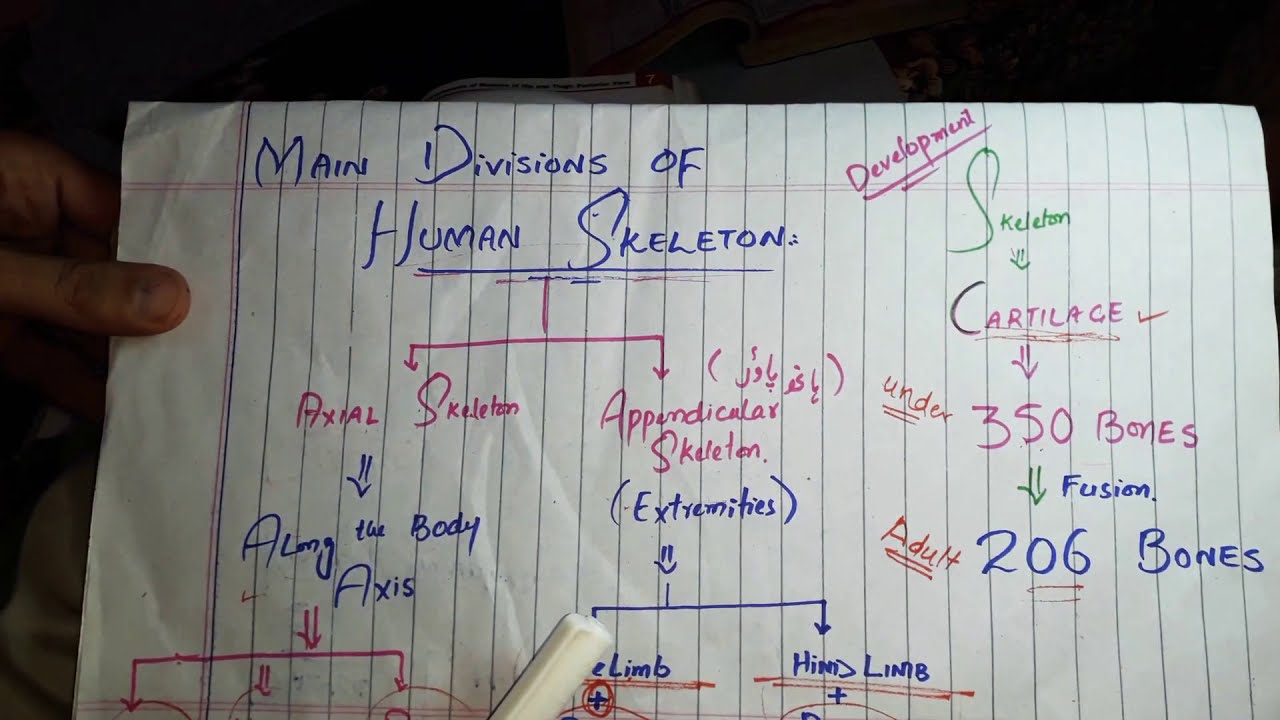 MAIN DIVISIONS OF
HUMAN SKELETON:
AXIAL SKELETON
ALONG the BODY
AXIS
Appendicular
Skeleton.
(Extremities)
eLimb
+
HIND LIMB
+
Development
Skeleton
CARTILAGE
under 350 BONES
Fusion.
Adult 206 BONES
7